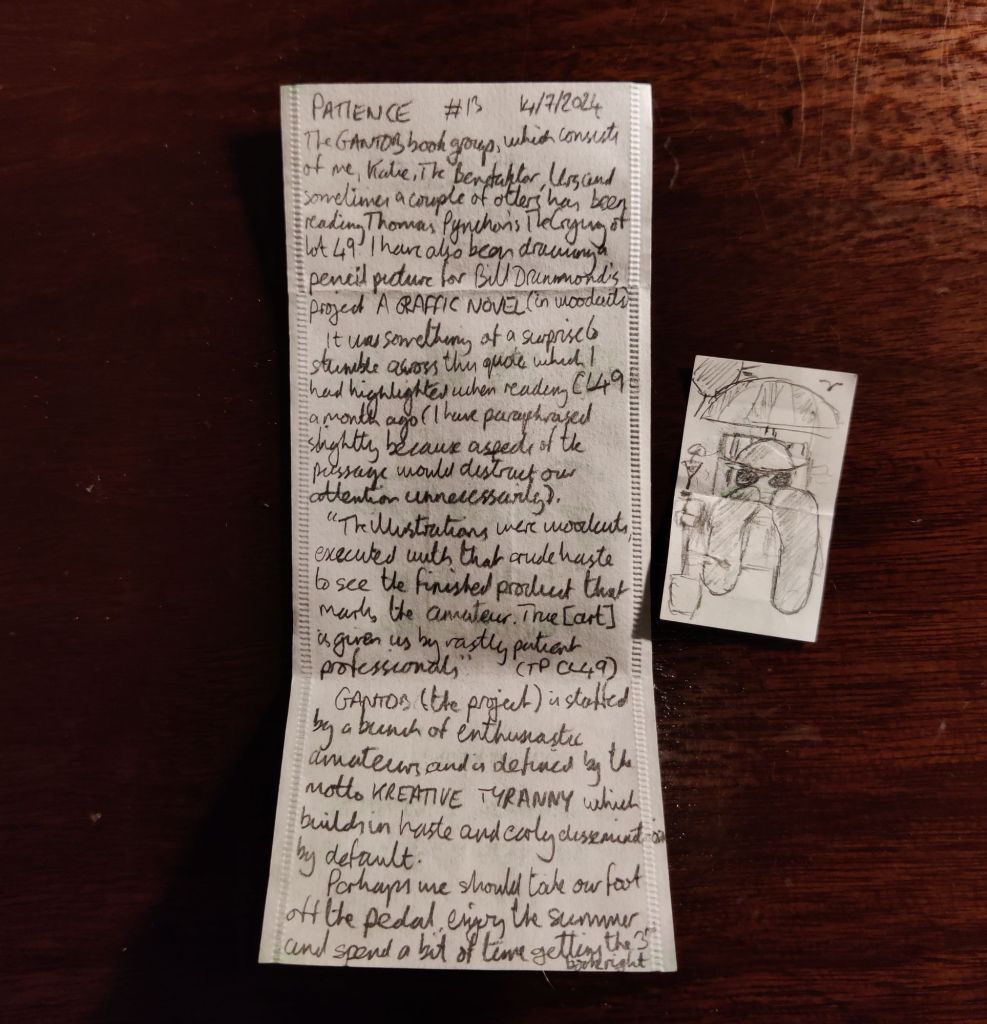 PATIENCE #13 14/7/2024
The GANTOB book group, which consists
of me, Katie, The Benefaktor, Urs and
sometimes a couple of others, has been
reading Thomas Pynchon's The Crying of
Lot 49. I have also been drawing a
pencil picture for Bill Drummond's
project A GRAFFIC NOVEL (in woodcuts)
It was something of a surprise to
stumble across this quote which I
had highlighted when reading CL49
a month ago (I have paraphrased
slightly because aspects of the
passage would distract our
attention unnecessarily).
"The illustrations were woodcuts,
executed with that crude haste
to see the finished product that
marks the amateur. True [art]
is given us by vastly patient
professionals" (TP CL49)
GANTOB (the project) is staffed
by a bunch of enthusiastic
amateurs and is defined by the
motto KREATIVE TYRANNY which
builds in haste and early dissemination
by default.
Perhaps we should take our foot
off the pedal, enjoy the summer
and spend a bit of time getting the 3rd
book right